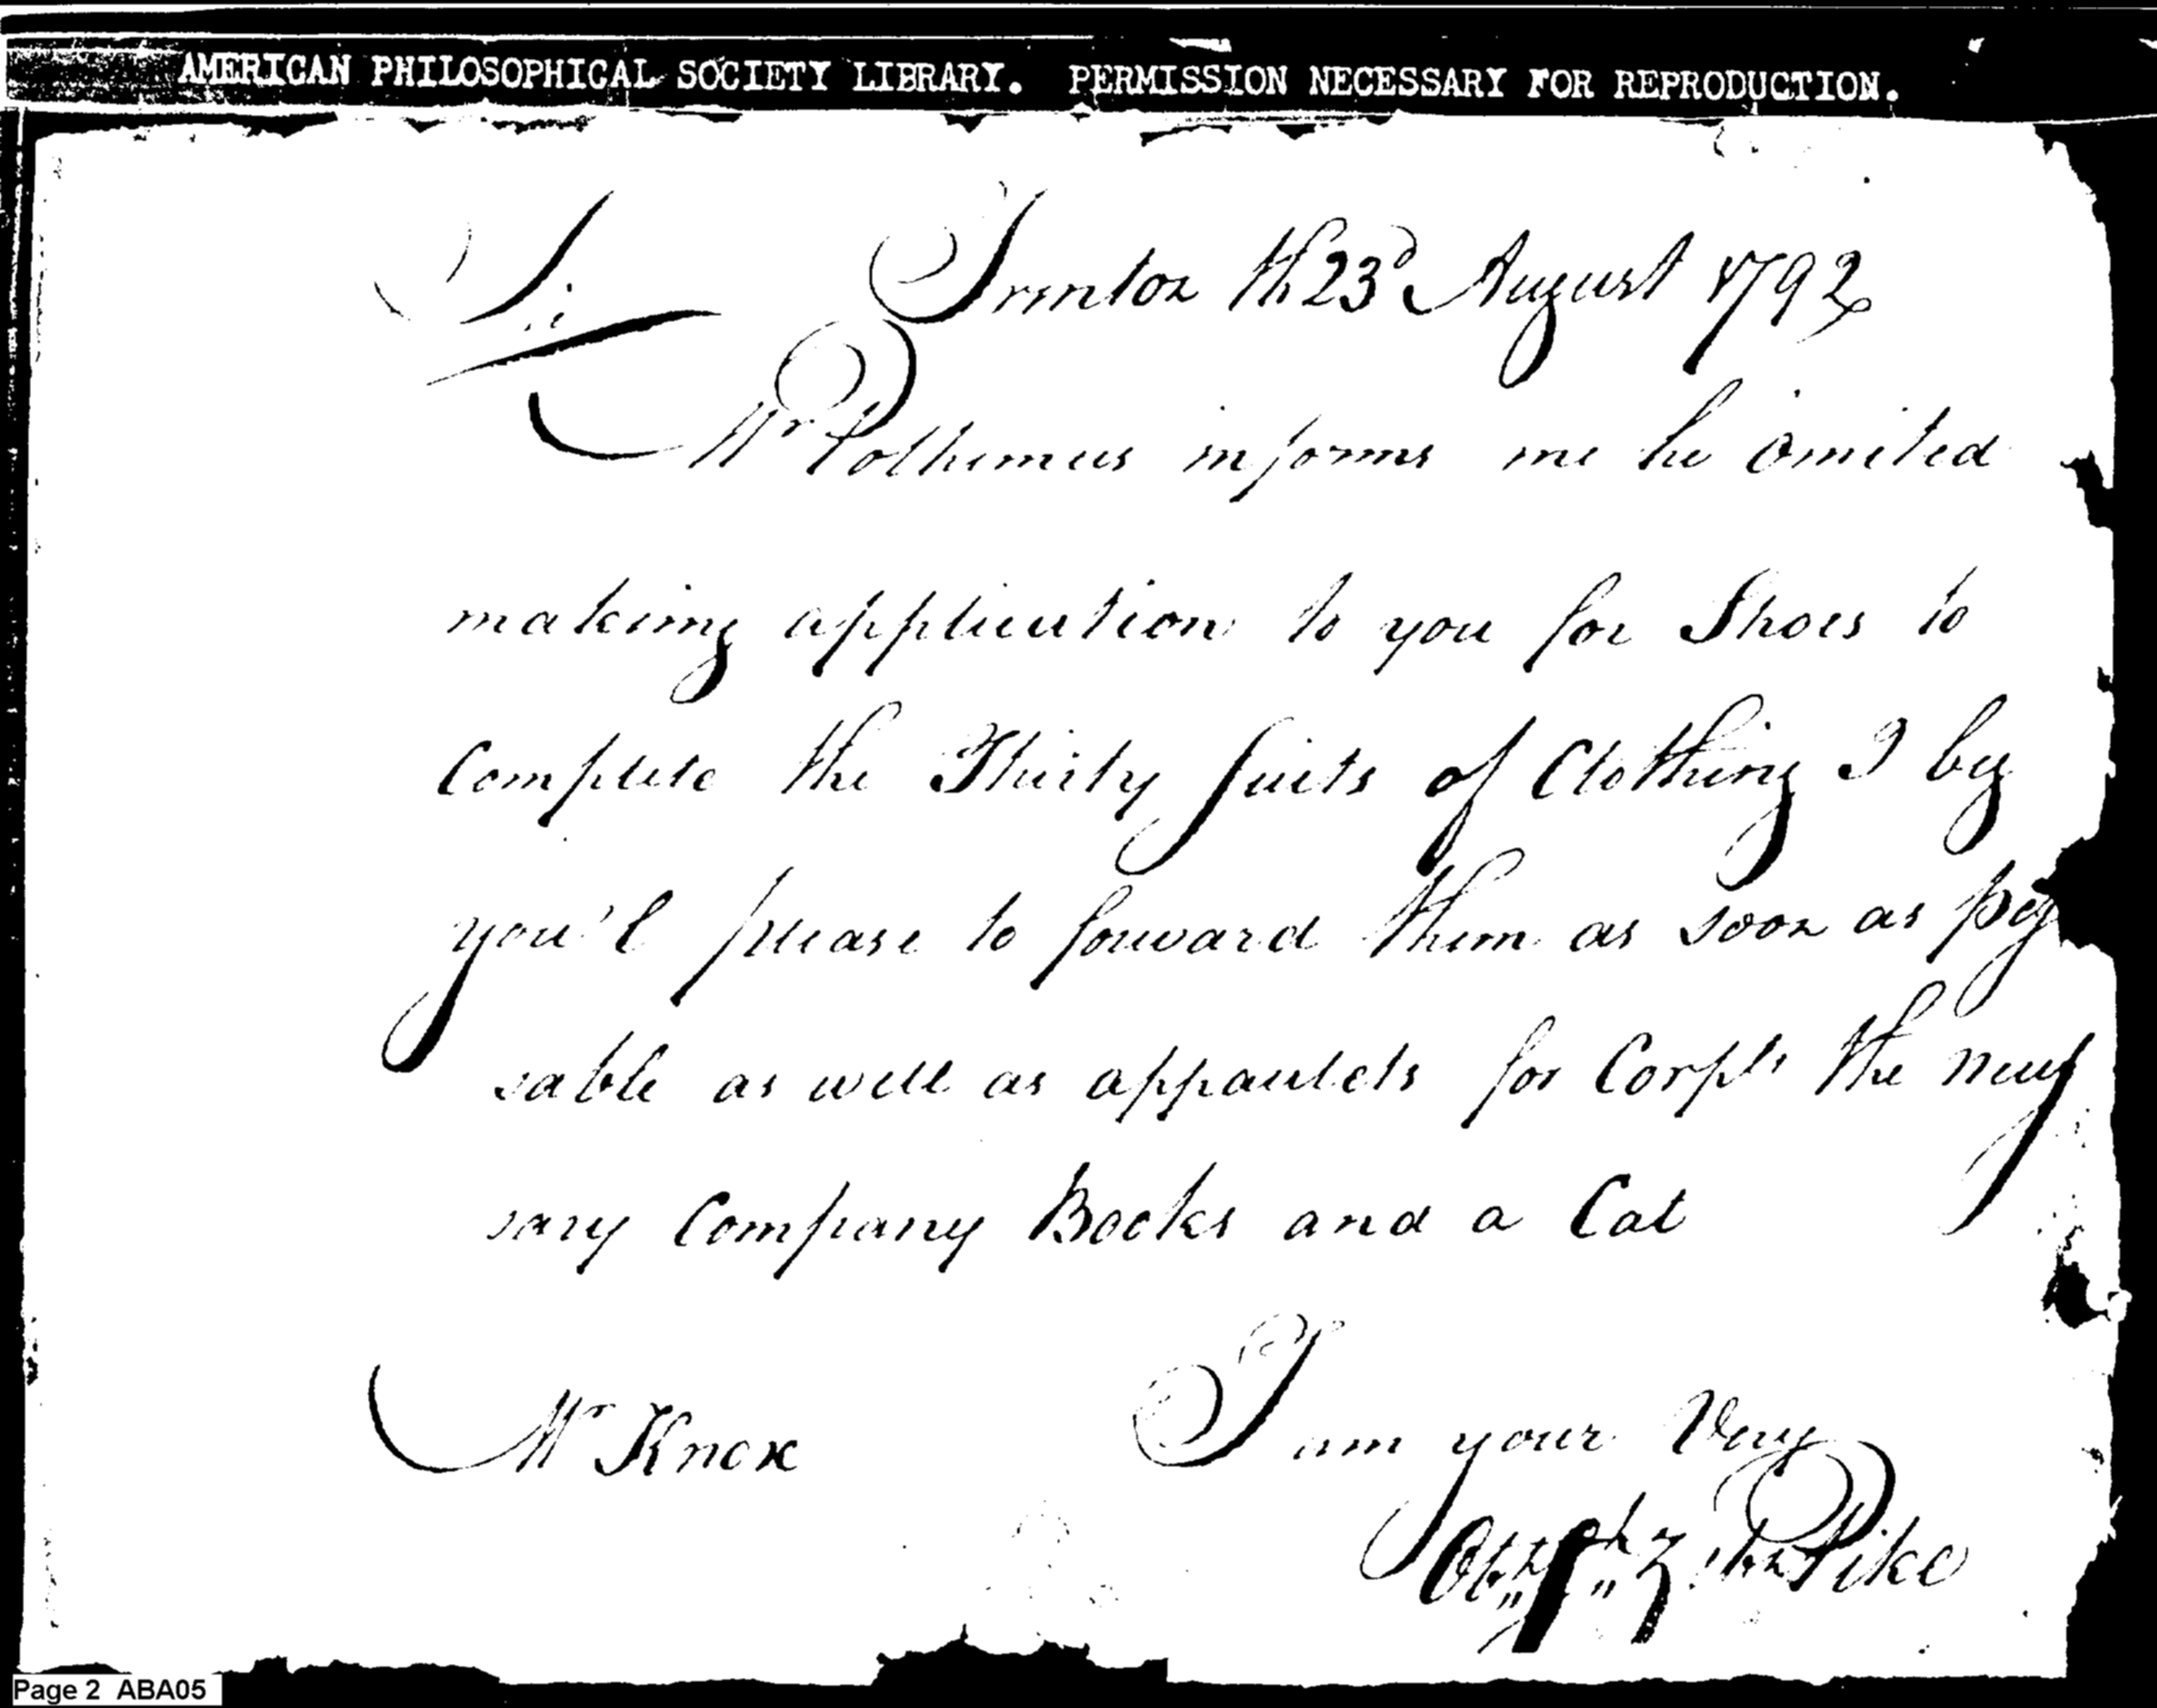 AMERICAN PHILOSOPHICAL SOCIETY LIBRARY. PERMISSION NECESSARY FOR REPRODUCTION.
Sir Trenton th 23d August 1792
Mr Polhemus informs me he omited
making application to you for Shoes to
Complete the Thirty Suits of Clothing I beg
you'l please to forward them as soon as
sable as well as appaulets for Corpls the necess
sary Company Books and a Cat
Mr Knox I am your Very
Pike
Page 2 ABA05